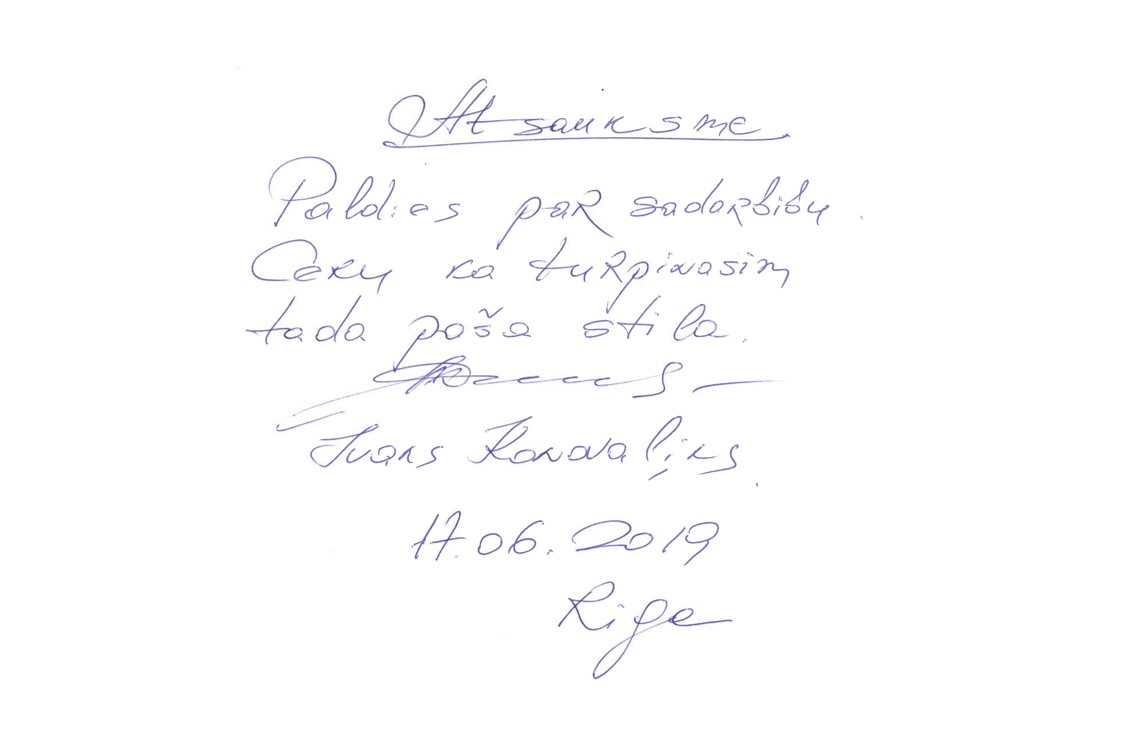 Atsauksme.
Paldies par sadarbību.
Ceru ka turpinasim
tada paša stila.
Ivars Konovaļiks
17.06.2019
Riga